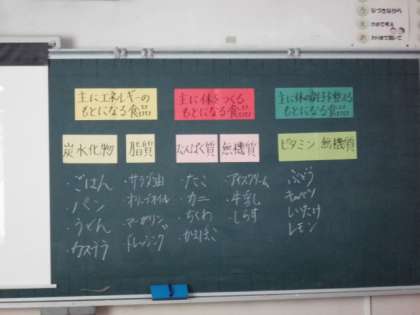 主にエネルギーの
もとになる食品
主に体をつくる
もとになる食品
主に体の調子を整える
もとになる食品
炭水化物
脂質
たんぱく質
無機質
ビタミン 無機質
・ごはん
・パン
・うどん
・カステラ
・サラダ油
・オリーブオイル
・マーガリン
・ドレッシング
・たこ
・カニ
・ちくわ
・かまぼこ
・アイスクリーム
・牛乳
・しらす
ぶどう
キャベツ
しいたけ
レモン